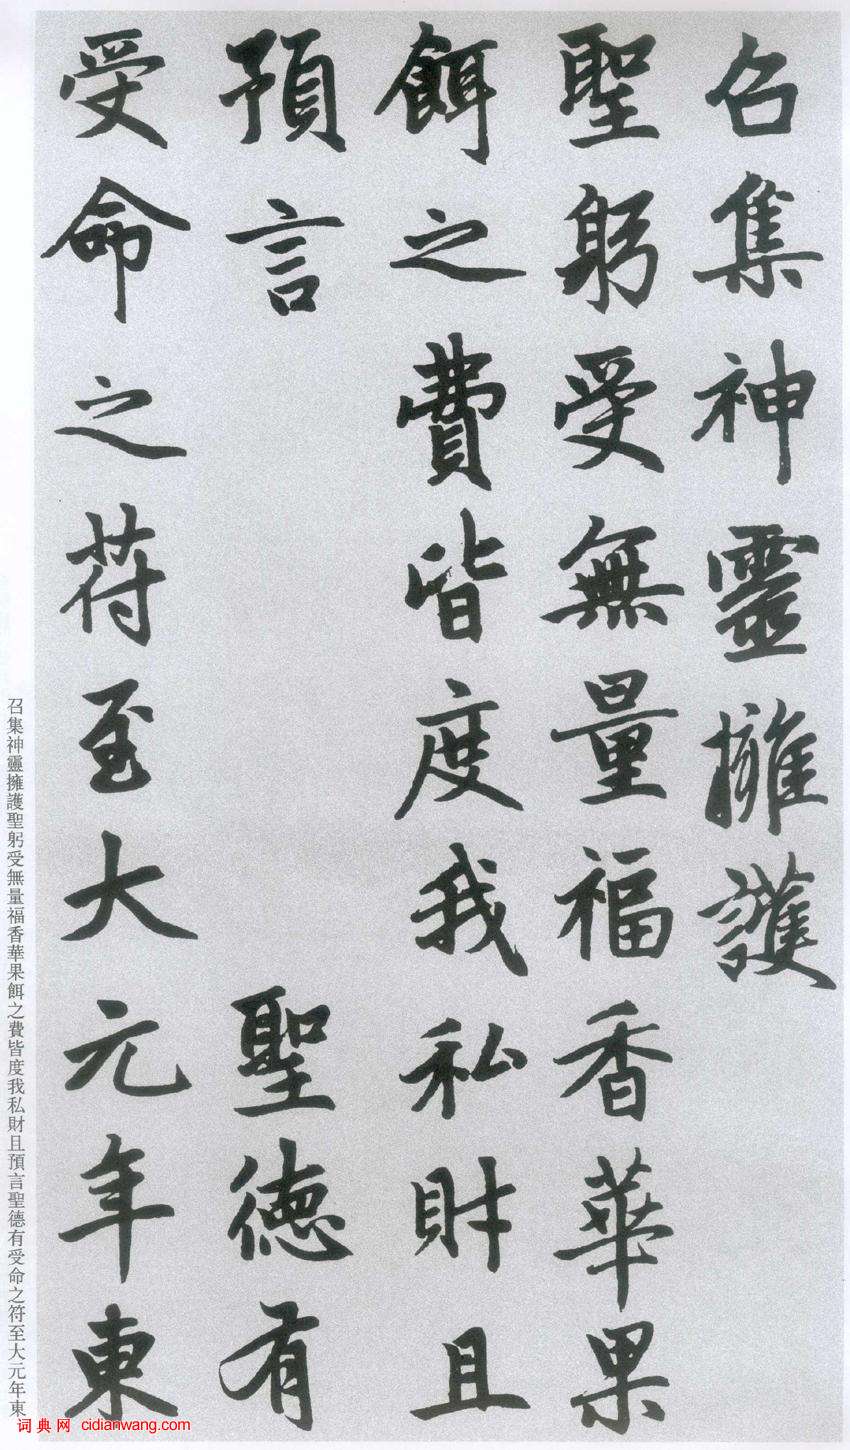 召集神靈擁護
聖躬受無量福香華果
餌之費皆度我私財且
預言聖德有
受命之符至大元年東
召集神靈擁護聖躬受無量福香華果餌之費皆度我私財且預言聖德有受命之符至大元年東
词典网 cidianwang.com